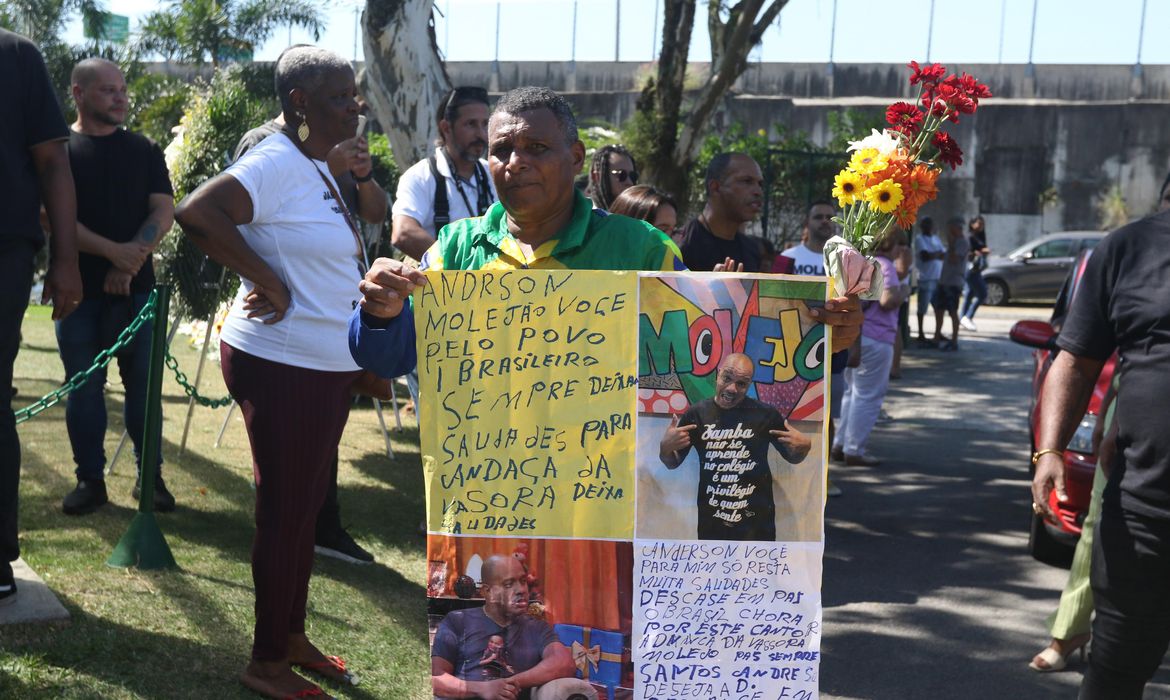 ANDRSON
MOLEJÃO VOCE
PELO POVO
I BRASILEIRO
SEMPRE DEIXA
SAUDADES PARA
ANDAÇA DA
VASORA DEIXA
SAUDADES
MOLEJO
Samba
não se
aprende
no colégio
é um
privilégio
de quem
sente
ANDERSON VOCÊ
PARA MIM SÓ RESTA
MUITA SAUDADES
DESCASE EM PAS
O BRASIL CHORA
POR ESTE CANTOR
DA VASSORA
MOLEJO PAS SEMPRE
SANTOS ANDRE
DESEJA A D.
DE EM